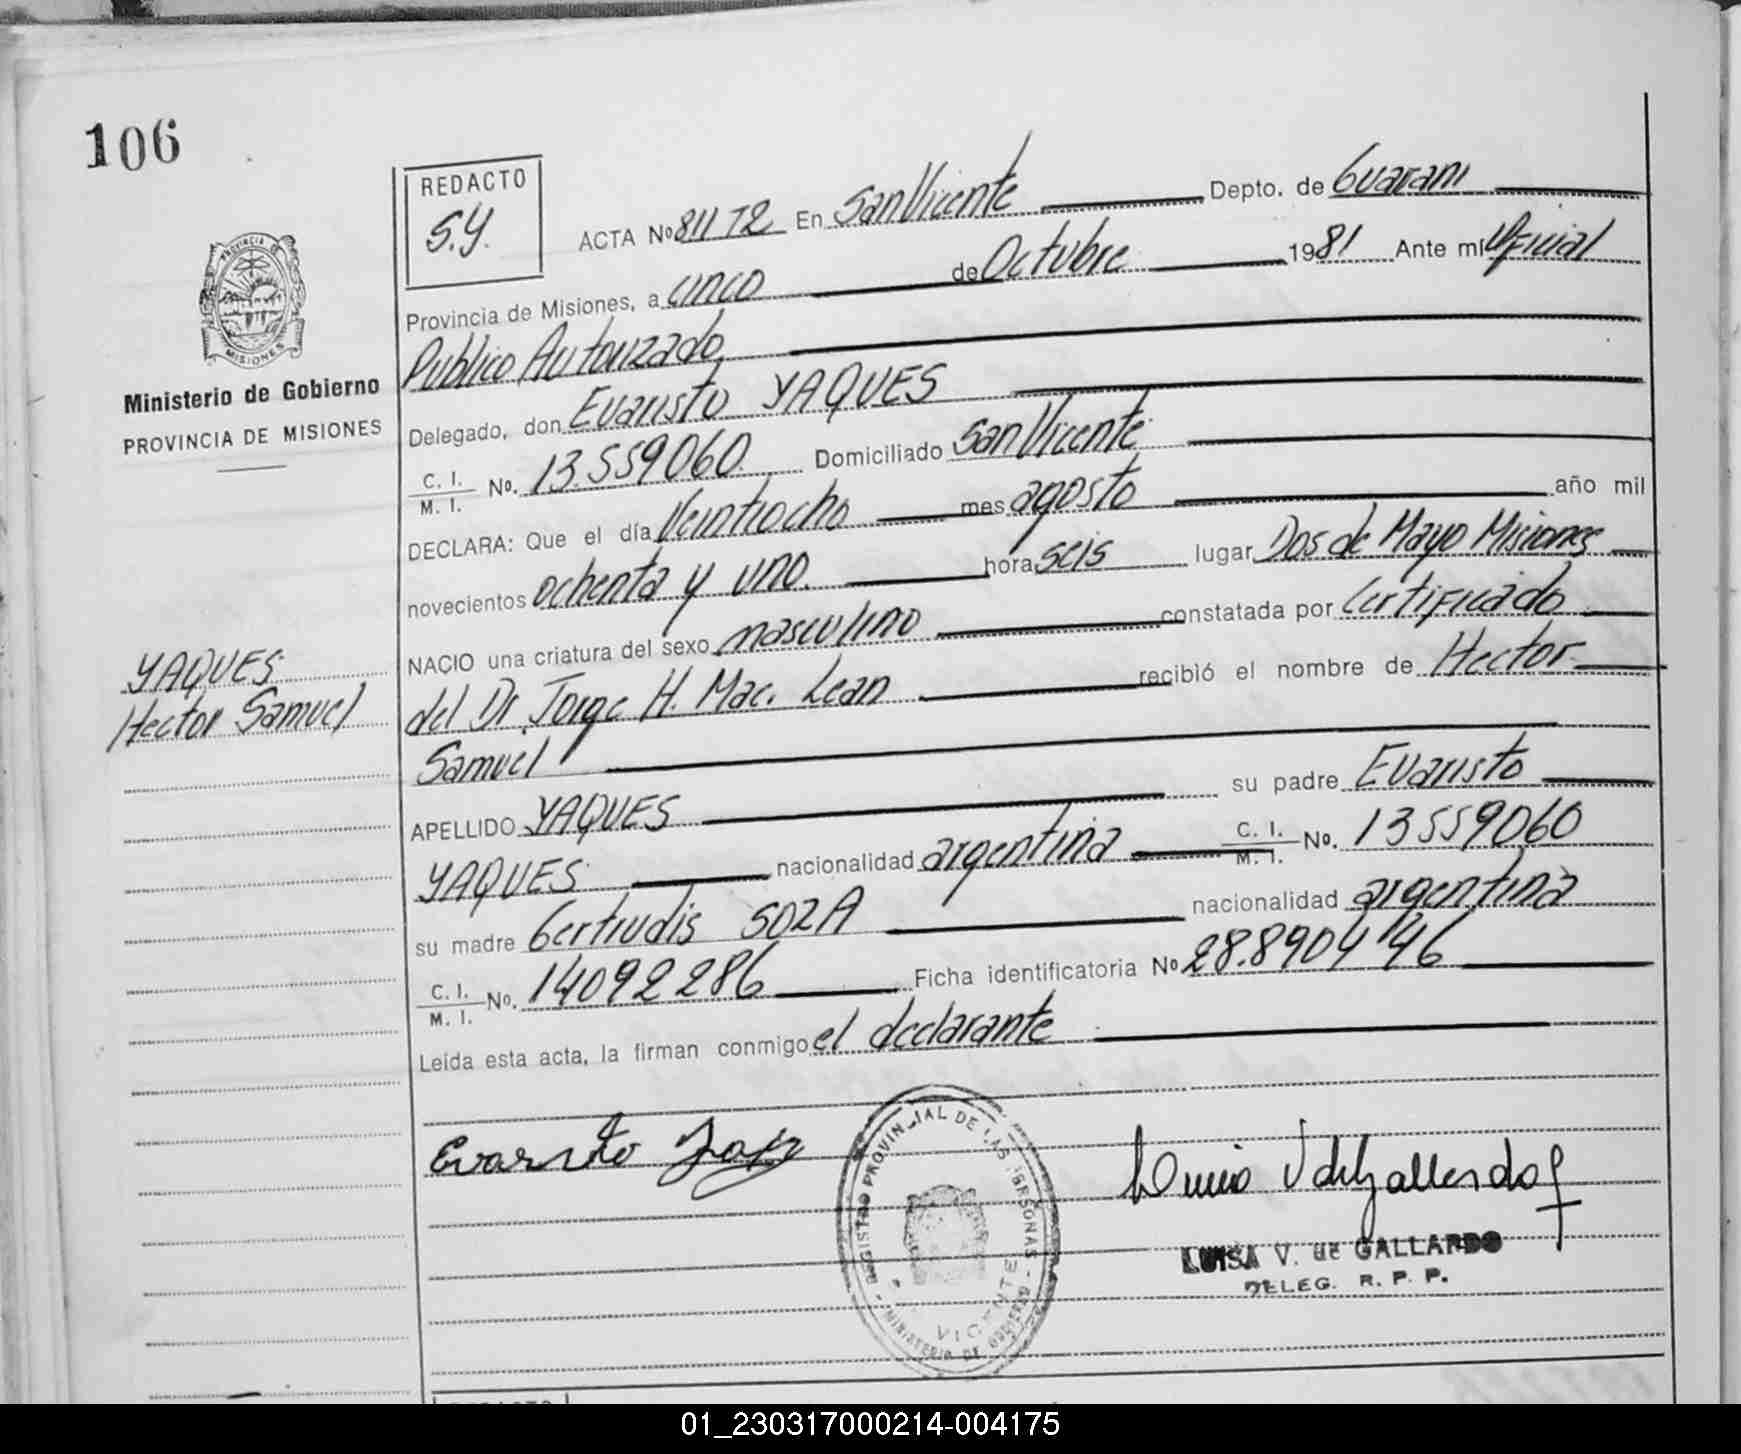 106
REDACTO
S.Y.
ACTA No 811 72 En San Vicente Depto. de Guarani
Provincia de Misiones, a cinco de Octubre 1981 Ante mí Oficial
Publico Autorizado
Delegado, don Evaristo YAQUES
C. I.
M. I. No. 13.559060. Domiciliado San Vicente
DECLARA: Que el día Veintiocho mes agosto año mil
novecientos ochenta y uno. hora seis lugar Dos de Mayo Misiones
NACIO una criatura del sexo masculino constatada por Certificado
del Dr. Jorge H. Mac. Lean recibió el nombre de Hector
Samuel
APELLIDO YAQUES su padre Evaristo
YAQUES nacionalidad argentina C. I. M. I. No. 13559060
su madre Gertrudis SOZA nacionalidad argentina
C. I.
M. I. No. 14092286 Ficha identificatoria No 28.890446
Leída esta acta, la firman conmigo el declarante
Evaristo
LUISA V. de GALLARDO
DELEG. R. P. P.
REGISTRO PROVINCIAL DE LAS PERSONAS
VICENTE
MINISTERIO DE GOBIERNO
PROVINCIA DE
MISIONES
Ministerio de Gobierno
PROVINCIA DE MISIONES
YAQUES
Hector Samuel
REDACTO
01_230317000214-004175